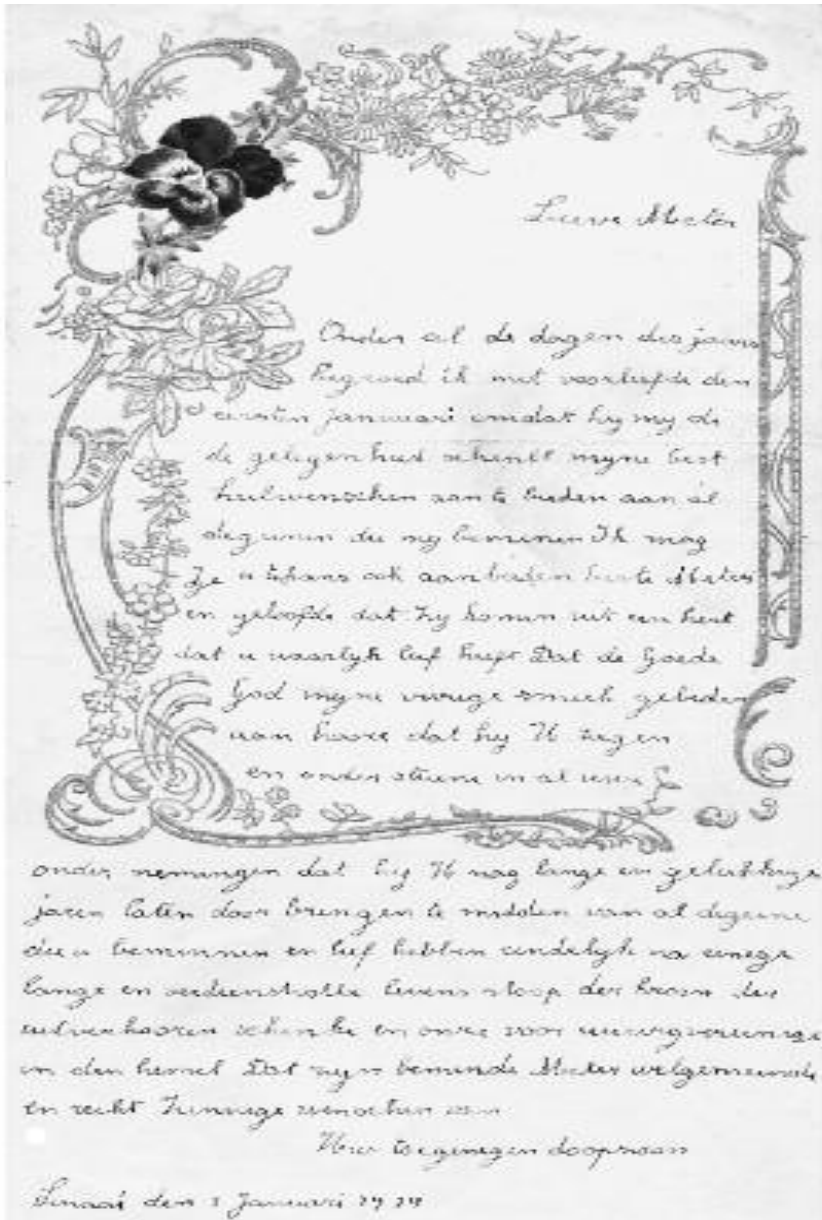 Lieve Meter
Onder al de dagen des jaars
begroed ik met voorliefde den
eersten januari omdat hy my
de gelegenheid schenkt myne best
heilwenschen aan te bieden aan al
degenen die my beminnen Ik mag
Ze u thans ook aanbieden beste Meter
en geloofde dat Zy komen uit een hert
dat u waarlyk lief heeft Dat de Goede
God myne vurige smeek gebeden
hoore dat hy U zegen
en ondersteune in al uwe
onder nemingen dat hy U nog lange en gelukkige
jaren laten door brengen te midden van al degeene
die u beminnen en lief hebben eindelyk na
lange en verdienstvolle levens loop der kroon der
schenke en ons voor
in den hemel Dat zyn beminde Meter welgemeende
en recht Zinnige wenschen van
Uw toegenegen doopzoon
Sinaai den 1 Januari 19